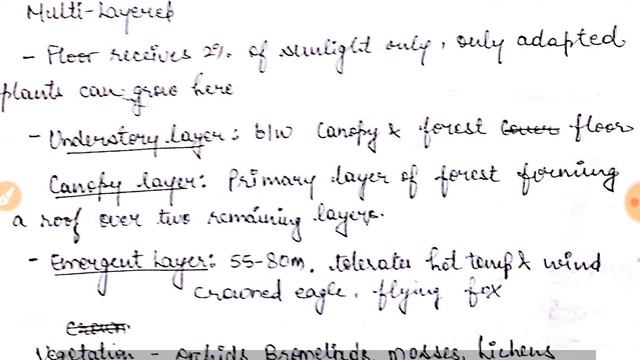 Multi-Layered
- Floor receives 2% of sunlight only, only adapted
plants can grow here
- Understory layer: b/w Canopy & forest floor
Canopy layer: Primary layer of forest forming
a roof over two remaining layers.
- Emergent Layer: 55-80m, tolerates hot temp & wind
crowned eagle, flying fox
Vegetation - orchids, Bromeliads, mosses, lichens